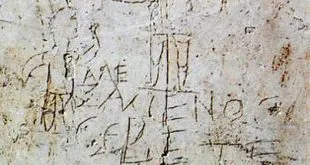 ΑΛΕ
ΞΑΜΕΝΟC
CΕΒΕΤΕ